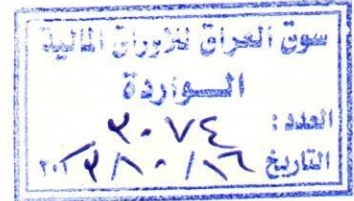 سوق العراق للأوراق المالية
الـــواردة
العدد : ٣٠٧٤
التاريخ ١٦ / ١٠ / ٢٠٢٣